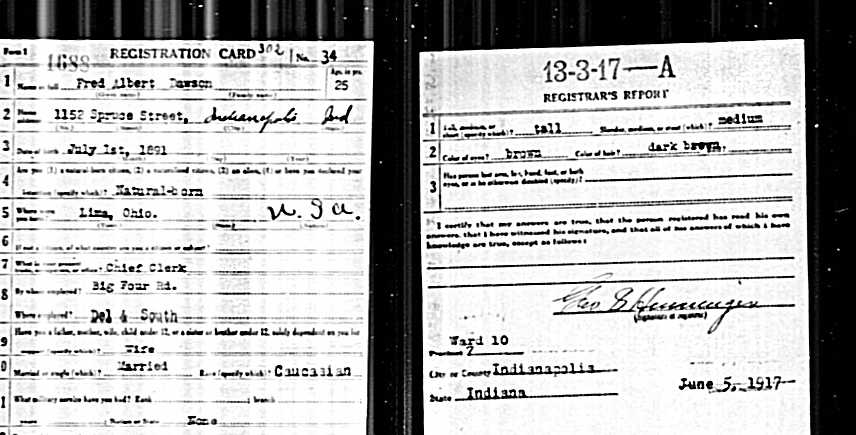 Form 1 1688 REGISTRATION CARD 302 No. 34
1 Name in full Fred Albert Dawson Age, in yrs. 25
(Given name) (Family name)
2 Home 1152 Spruce Street, Indianapolis Ind
(No.) (Street) (City) (State)
3 Date of birth July 1st, 1891
(Month) (Day) (Year)
4 Are you (1) a natural-born citizen, (2) a naturalized citizen, (3) an alien, (4) or have you declared your
intention (specify which)? Natural-born
5 Where were you born? Lima, Ohio. U.S.A.
(Town) (State) (Nation)
6 If not a citizen, of what country are you a citizen or subject?
7 What is your present trade, occupation, or office? Chief Clerk
8 By whom employed? Big Four Rd.
Where employed? Del & South
9 Have you a father, mother, wife, child under 12, or a sister or brother under 12, solely dependent on you for
support (specify which)? Wife
0 Married or single (which)? Married Race (specify which)? Caucasian
1 What military service have you had? Rank ; branch
years ; Nation or State None
13-3-17-A
REGISTRAR'S REPORT
1 Tall, medium, or short (specify which)? tall Slender, medium, or stout (which)? medium
2 Color of eyes? brown Color of hair? dark brown.
3 Has person lost arm, leg, hand, foot, or both
eyes, or is he otherwise disabled (specify)?
I certify that my answers are true, that the person registered has read his own
answers, that I have witnessed his signature, and that all of his answers of which I have
knowledge are true, except as follows:
Geo E Hunsinger
(Signature of registrar)
Ward 10
Precinct 7
City or County Indianapolis
State Indiana June 5, 1917